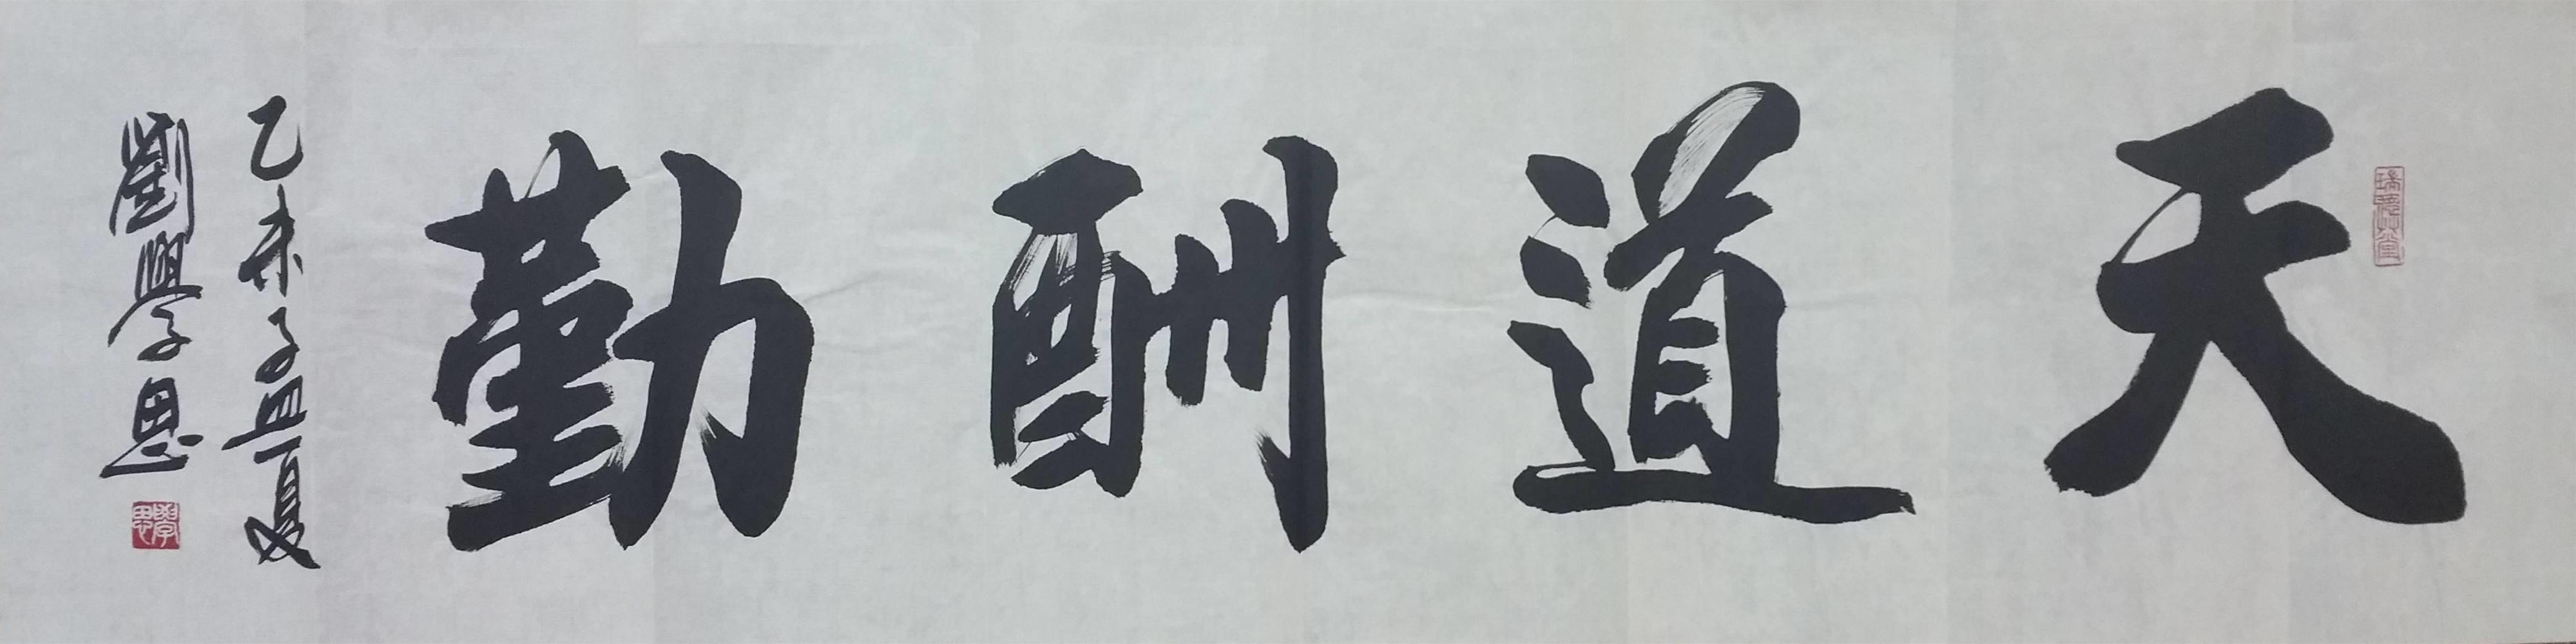 天道酬勤
乙未孟夏
劉學思
學思